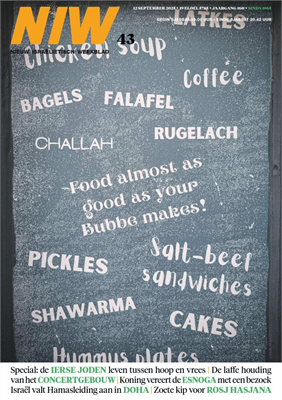 NIW
NIEUW ISRAELIETISCH WEEKBLAD
43
12 SEPTEMBER 2025
JAARGANG 160
SINDS 1865
LATKES
CHICKEN SOUP
Coffee
BAGELS FALAFEL
RUGELACH
CHALLAH
Food almost as
good as your
Bubbe makes!
Salt-beef
PICKLES sandwiches
SHAWARMA
CAKES
Hummus plates
Special: de IERSE JODEN leven tussen hoop en vrees | De laffe houding
van het CONCERTGEBOUW | Koning vereert de ESNOGA met een bezoek
Israël valt Hamasleiding aan in DOHA | Zoete kip voor ROSJ HASJANA